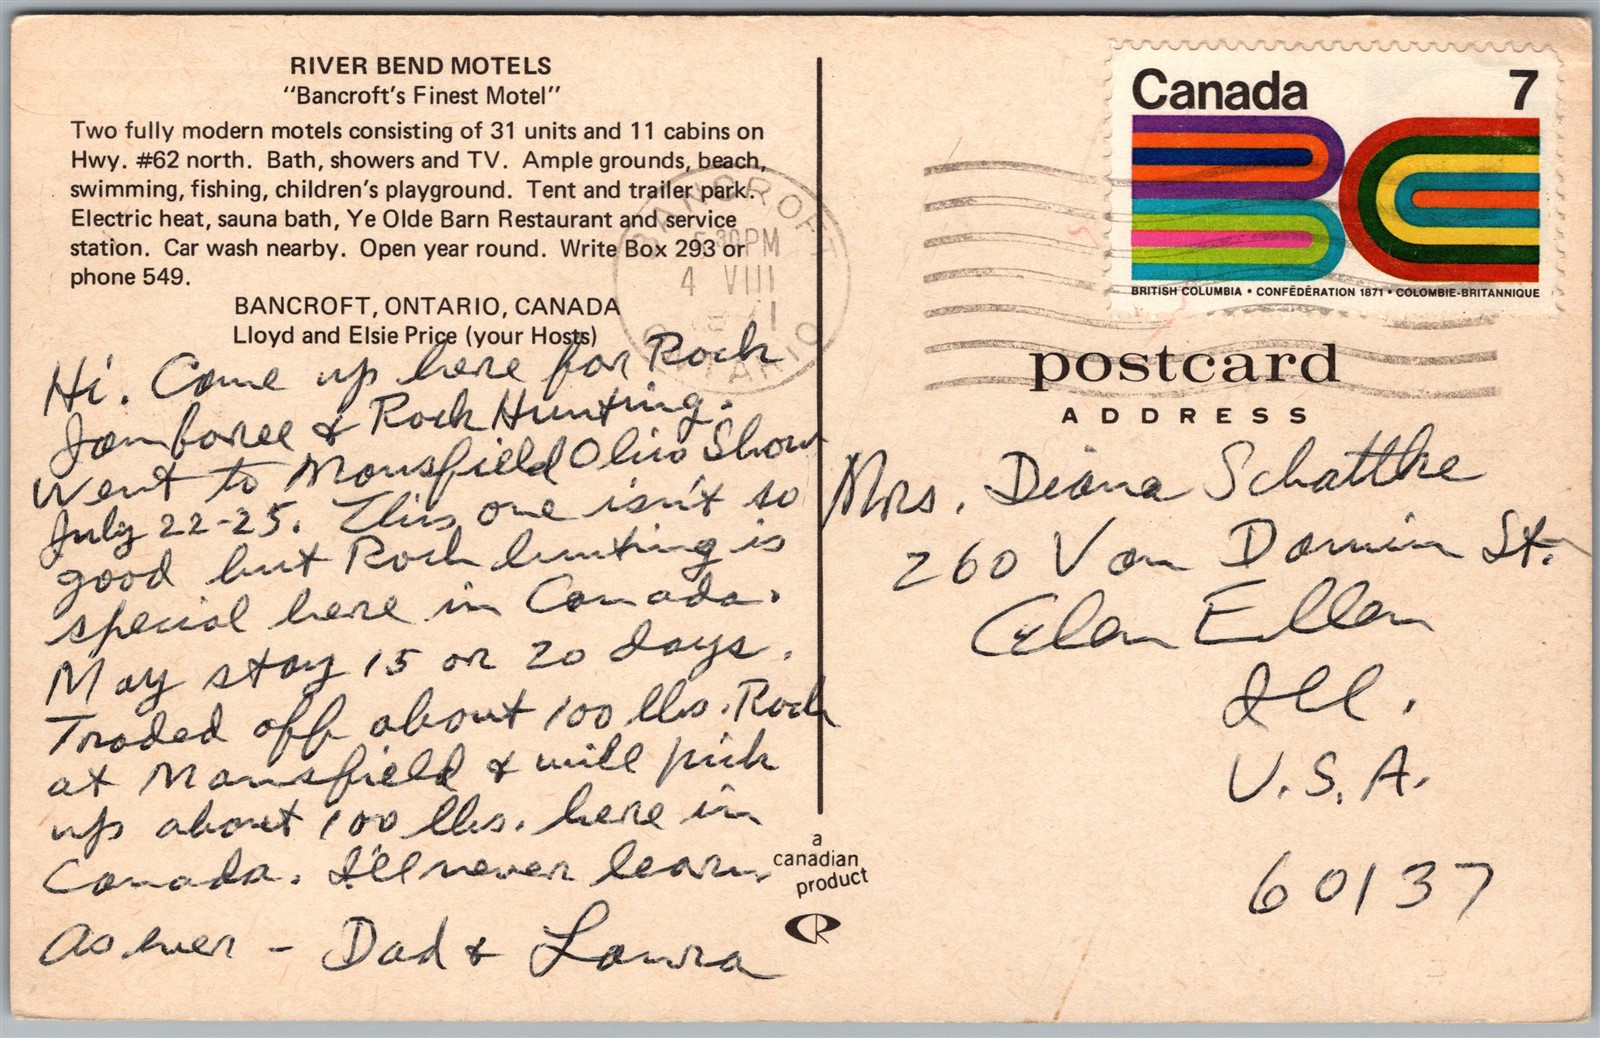 RIVER BEND MOTELS
"Bancroft's Finest Motel"
Two fully modern motels consisting of 31 units and 11 cabins on
Hwy. #62 north. Bath, showers and TV. Ample grounds, beach,
swimming, fishing, children's playground. Tent and trailer park.
Electric heat, sauna bath, Ye Olde Barn Restaurant and service
station. Car wash nearby. Open year round. Write Box 293 or
phone 549.
BANCROFT, ONTARIO, CANADA
Lloyd and Elsie Price (your Hosts)
Hi. Came up here for Rock
Jamboree & Rock Hunting.
Went to Mansfield Ohio Show
July 22-25. This one isn't so
good but Rock hunting is
special here in Canada.
May stay 15 or 20 days.
Traded off about 100 lbs. Rock
at Mansfield & will pick
up about 100 lbs. here in
Canada. I'll never learn.
As ever - Dad & Laura
a
canadian
product
CR
BANCROFT
5 30PM
4 VIII
ONTARIO
Canada 7
BRITISH COLUMBIA • CONFÉDÉRATION 1871 • COLOMBIE-BRITANNIQUE
postcard
ADDRESS
Mrs. Diana Schattke
260 Van Damin St.
Glen Ellen
Ill.
U.S.A.
60137